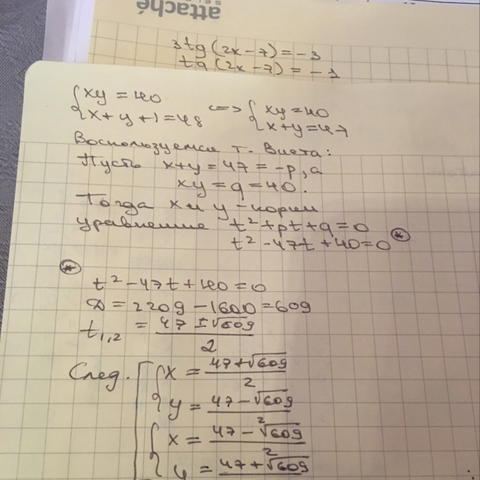 attaché
3tg(2x-7)=-3
tg(2x-7)=-1
{xy=40 <=> {xy=40
{x+y+1=48 {x+y=47
Воспользуемся т. Виета:
Пусть x+y=47=-p, а
xy=q=40.
Тогда x и y - корни
уравнения t²+pt+q=0
t²-47t+40=0 *
* t²-47t+40=0
D=2209-1600=609
t₁,₂ = (47±√609)/2
След. [{x = (47+√609)/2
{y = (47-√609)/2
{x = (47-√609)/2
{y = 47+√609